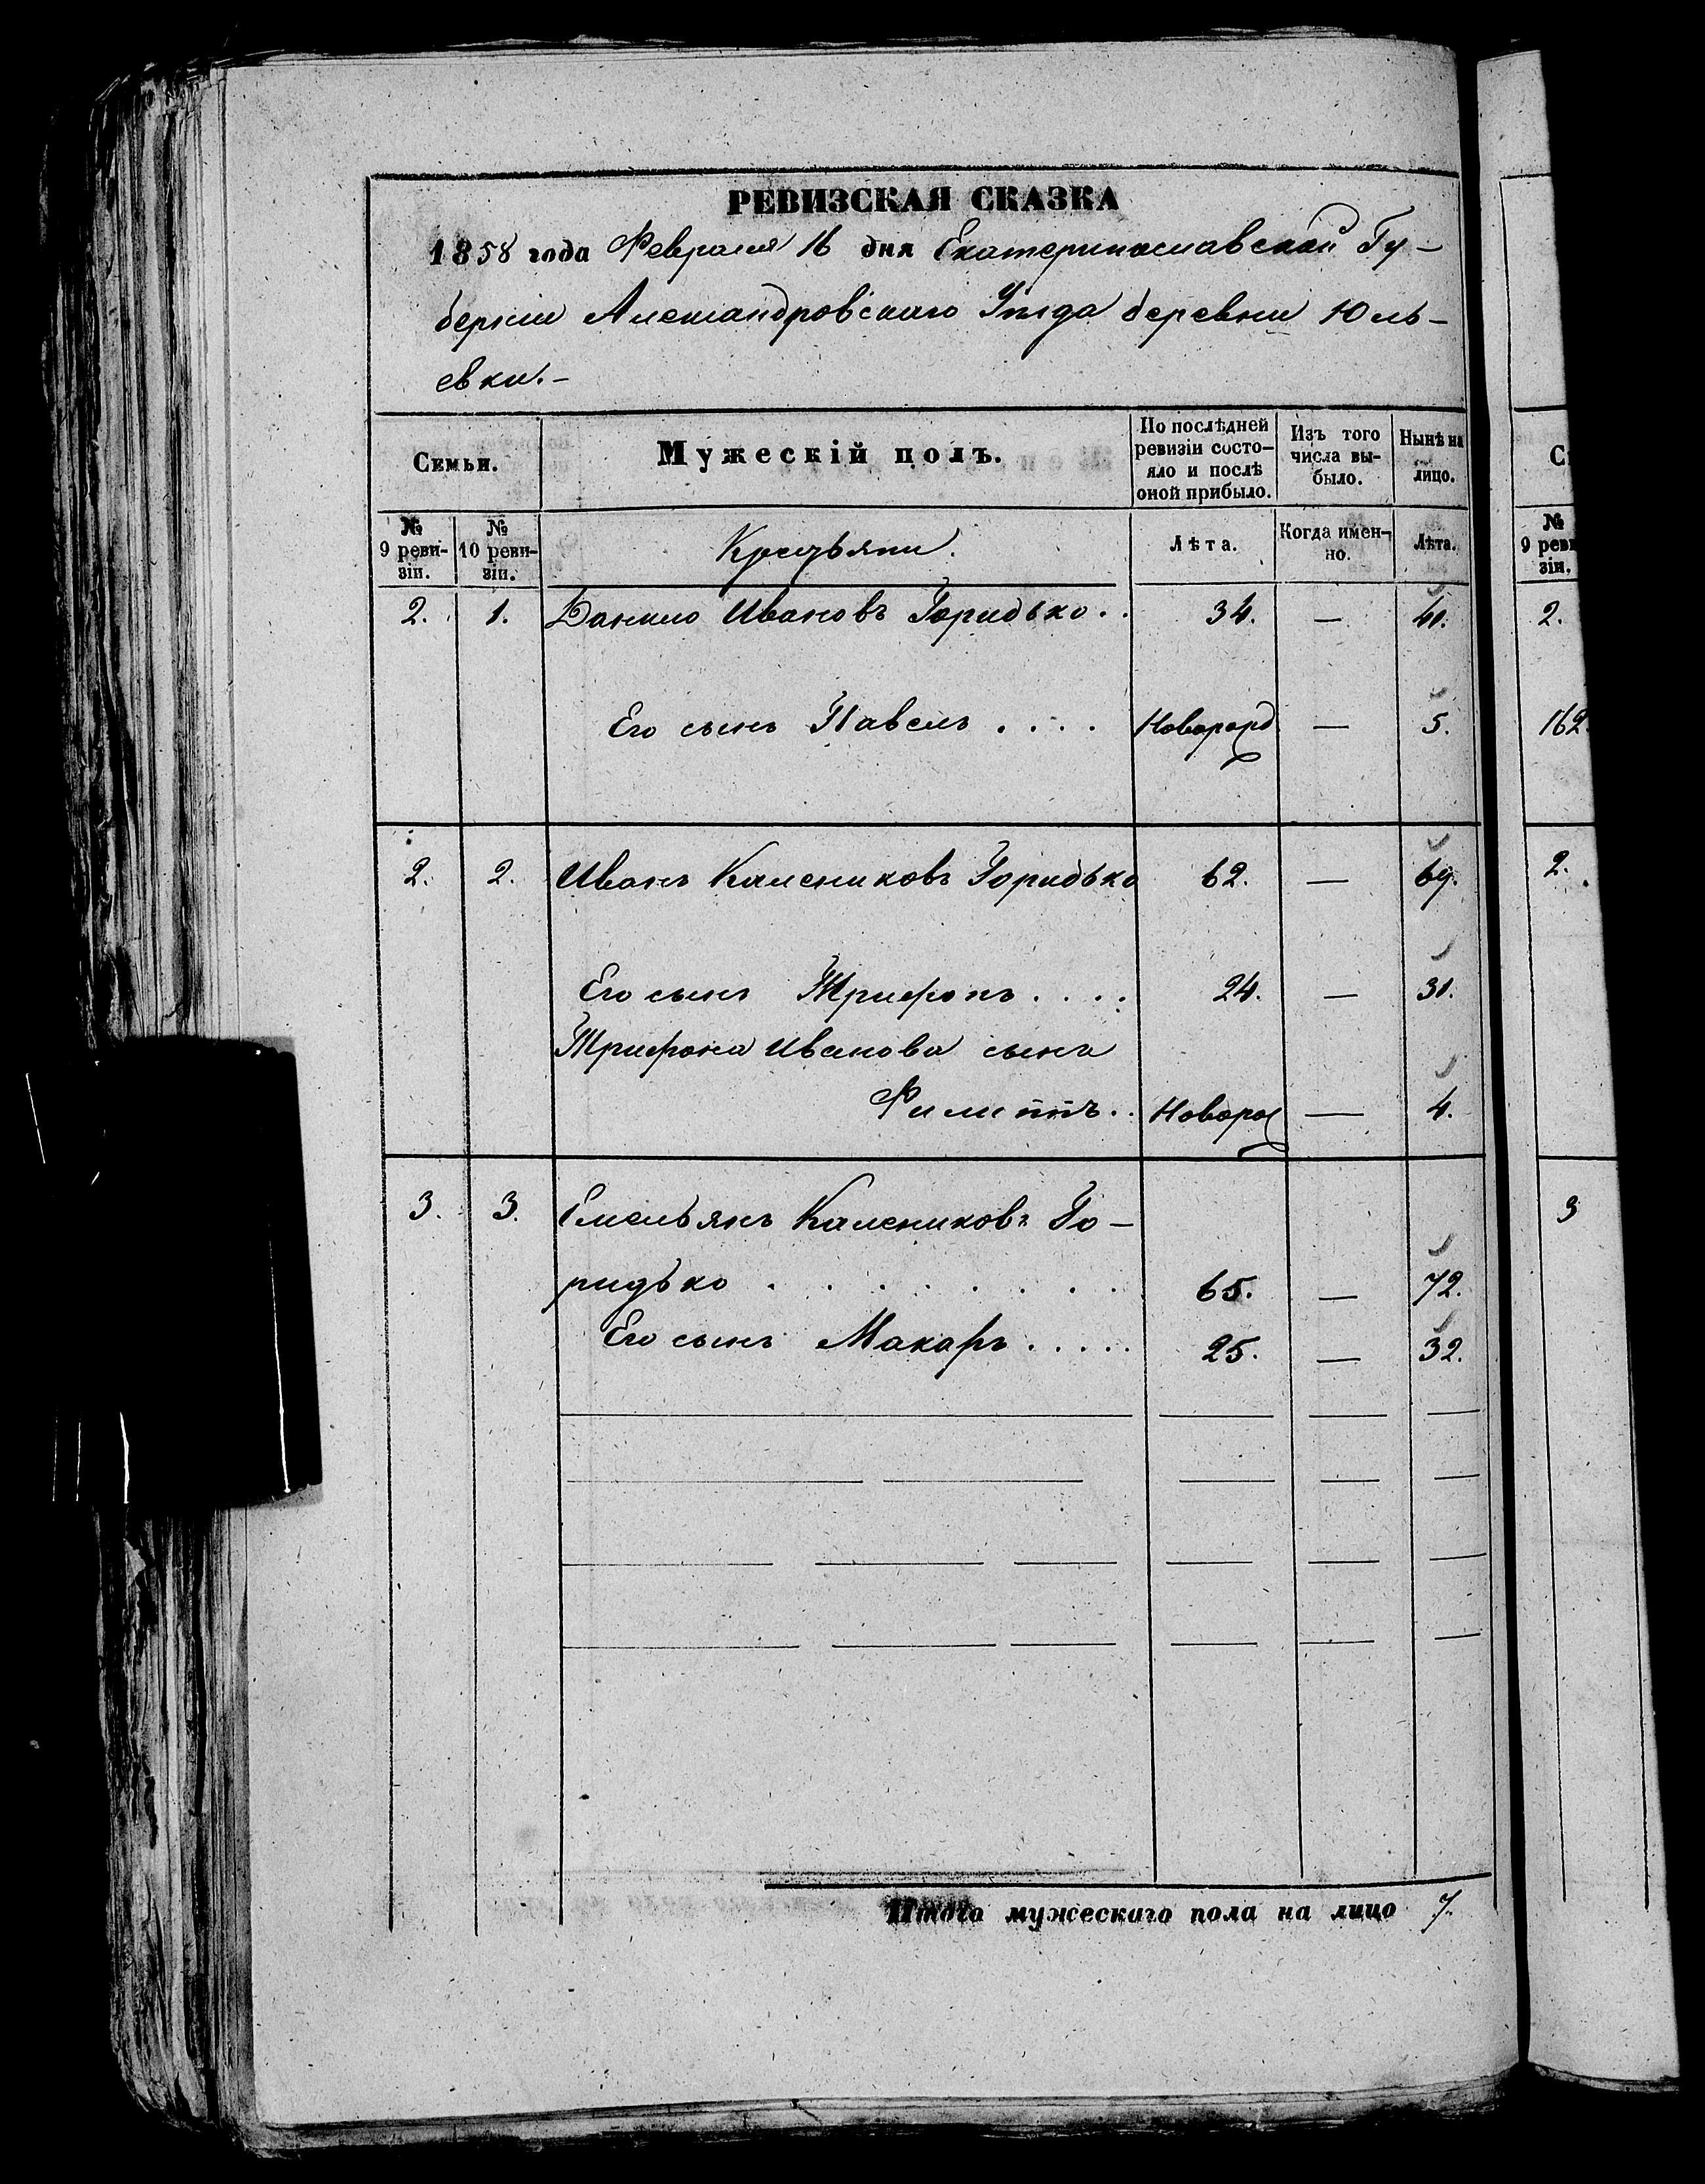 РЕВИЗСКАЯ СКАЗКА
1858 года Февраля 16 дня Екатеринославской Гу-
берніи Александровскаго Уѣзда деревни Юль-
евки.-
Семьи.
Мужескій полъ.
По послѣдней ревизіи состо-яло и послѣ оной прибыло.
Изъ того числа вы-было.
Нынѣ на лицо.
№ 9 реви-зіи.
№ 10 реви-зіи.
Крестьяни.
Лѣта.
Когда имен-но.
Лѣта.
2. 1. Данило Ивановъ Горидько.. 34. — 41.
Его сынъ Павелъ .... Новорожд — 5.
2. 2. Иванъ Калениковъ Горидько 62. — 69.
Его сынъ Трифонъ .... 24. — 31.
Трифона Иванова сынъ
Филиппъ.. Новорож — 4.
3. 3. Емельянъ Калениковъ Го-
ридько ........ 65. — 72.
Его сынъ Макаръ ..... 25. — 32.
Итого мужескаго пола на лицо 7.
№
9 реви
зіи.
2.
162.
2.
3